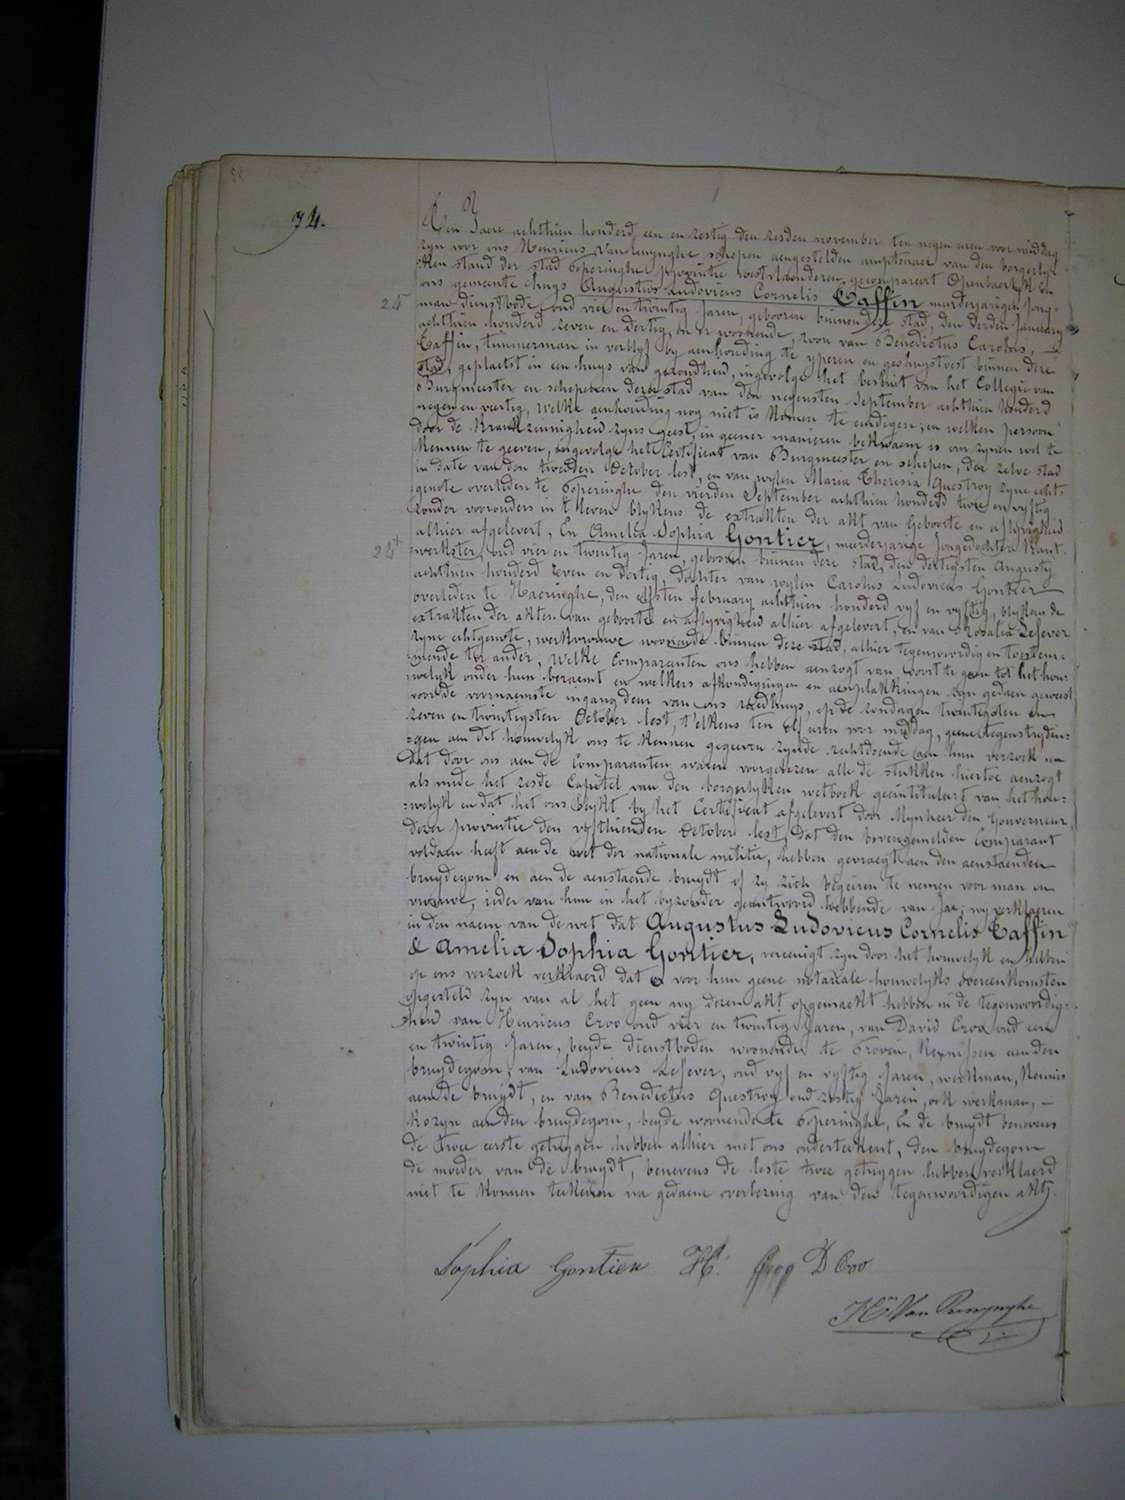 74.
Den Jaere achthien honderd een en zestig den zesden november ten negen uren voor middag
zyn voor ons Henricus Van Renynghe schepen aengestelden amptenaer van den borgerlyk-
-ken stand der stad Poperinghe provintie westvlaenderen, gecompareert Openbaerlyk in
ons gemeente huys Augustus Ludovicus Cornelis Taffin meerderjarigen jong-
24
man dienstbode oud vier en twintig Jaren, gebooren binnen deze stad, den derden January
achthien honderd zeven en dertig, en er woonende, zoon van Benedictus Carolus,
Taffin, timmerman in verblyf by aenhouding te yperen en gehuystvest binnen deze
stad, geplaetst in een huys van gezondheid, ingevolge het besluit van het Collegie van
Burgmeester en schepenen dezer stad van den negensten September achthien honderd
negen en veertig, welke aenhouding nog niet is komen te eindigen, en welken persoon
door de krankzinnigheid zyns geest, in geener manieren bekwaem is om zynen wil te
kennen te geeven, ingevolge het Certificat van Burgmeester en schepen, der zelve stad
in date van den tweeden October lest, en van wylen Maria Theresia Questroy zyne echt-
genote overleden te Poperinghe den vierden September achthien honderd twee en vyftig
zonder voorouders in 't leven blykens de extrakten der akt van Geboorte en aflyvigheid
alhier afgelevert, En Amelia Sophia Gontier, meerderjarige Jongedochter Kant-
24
werkster, oud vier en twintig Jaren, gebooren binnen deze stad, den dertigsten Augusty
achthien honderd zeven en dertig, dochter van wylen Carolus Ludovicus Gontier
overleden te Haeringhe, den elfsten february achthien honderd vyf en vyftig, blykens de
extrakten der akten van geboorte en aflyvigheid alhier afgelevert, en van Rosalia Lefever
zyne echtgenote, werkvrouwe woonende binnen deze stad, alhier tegenwoordig en toestem-
-mende ter ander, Welke Comparanten ons hebben aenzogt van voort te gaen tot het hou-
-welyk onder hun beraemt en welkers afkondigingen en aenplakkingen zyn gedaen geweest
voor de voornaemste ingang deur van ons raedhuys, op de zondagen twintigsten en
zeven en twintigsten October lest, t'elkens ten elf uren voor middag, geene tegenstryding-
-gen aen dit houwelyk ons te kennen gegeeven zynde rechtdoende aen hun verzoek na
dat door ons aen de Comparanten waren voorgelezen alle de stukken hiertoe aenzogt
als mede het zesde Capittel van den borgerlykken wetboek geintituleerd van het hou-
-welyk en dat het ons blykt by het Certificat afgelevert door Mynheer den Gouverneur
dezer provintie den vyfthienden October lest, dat den bovengemelden Comparant
voldaen heeft aen de wet der nationale militie, hebben gevraegt aen den aenstaenden
bruydegom en aen de aenstaende bruydt of zy zich begeiren te nemen voor man en
vrouwe, ieder van hun in het byzonder geantwoord hebbende van Jae; wy verklaeren
in den naem van de wet dat Augustus Ludovicus Cornelis Taffin
& Amelia Sophia Gontier, vereenigt zyn door het houwelyk en hebben
op ons verzoek verklaerd dat er voor hun geene notariale houwelyks overeenkomsten
opgesteld zyn van al het geen wy dezen akt opgemaekt hebben in de tegenwoordig-
-heid van Henricus Croo oud vier en twintig Jaren, van David Croo oud een
en twintig Jaren, beyde dienstboden woonende te Proven, Kennissen aen den
bruydegom, van Ludovicus Lefever, oud vyf en vyftig Jaren, werkman, Kennis
aen de bruydt, en van Benedictus Questroy oud zestig Jaren, ook werkman, –
Kozyn aen den bruydegom, beyde woonende te Poperinghe, En de bruydt benevens
de twee eerste getuygen hebben alhier met ons onderteekent, den bruydegom
de moeder van de bruydt, benevens de leste twee getuygen hebben verklaerd
niet te konnen teekenen na gedaene overlezing van den tegenwoordigen akt.
Sophia Gontier H. Croo D Croo
Hri Van Renynghe